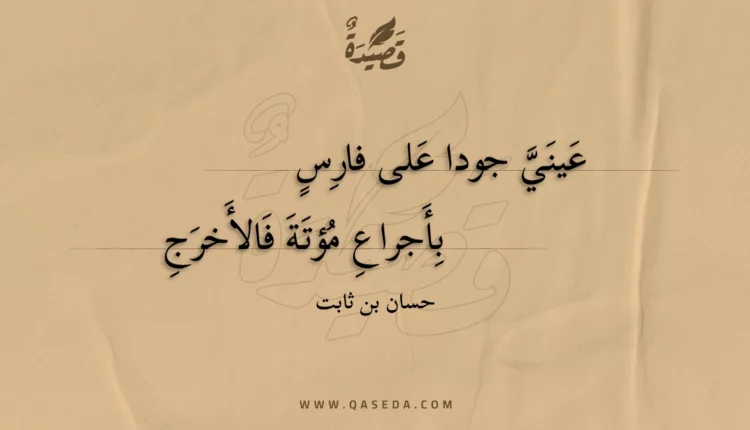 قَصِيدَةٌ
عَينَيَّ جودا عَلى فارِسٍ
بِأَجراعِ مُؤتَةَ فَالأَخرَجِ
حسان بن ثابت
WWW.QASEDA.COM